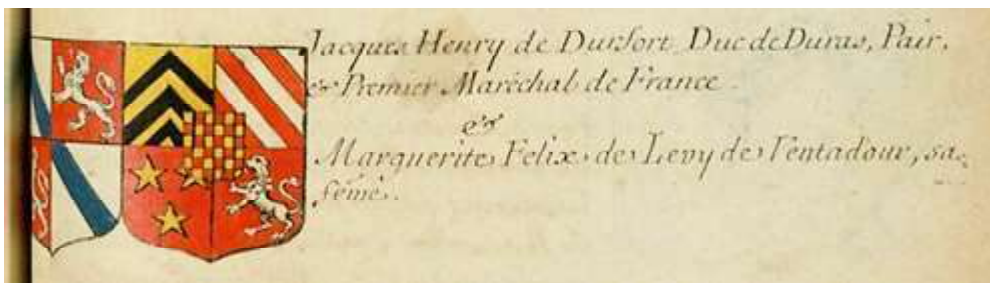 Jacques Henry de Durfort Duc de Duras, Pair,
& Premier Maréchal de France.
&
Marguerite Felix de Levy de Ventadour, sa
féme.